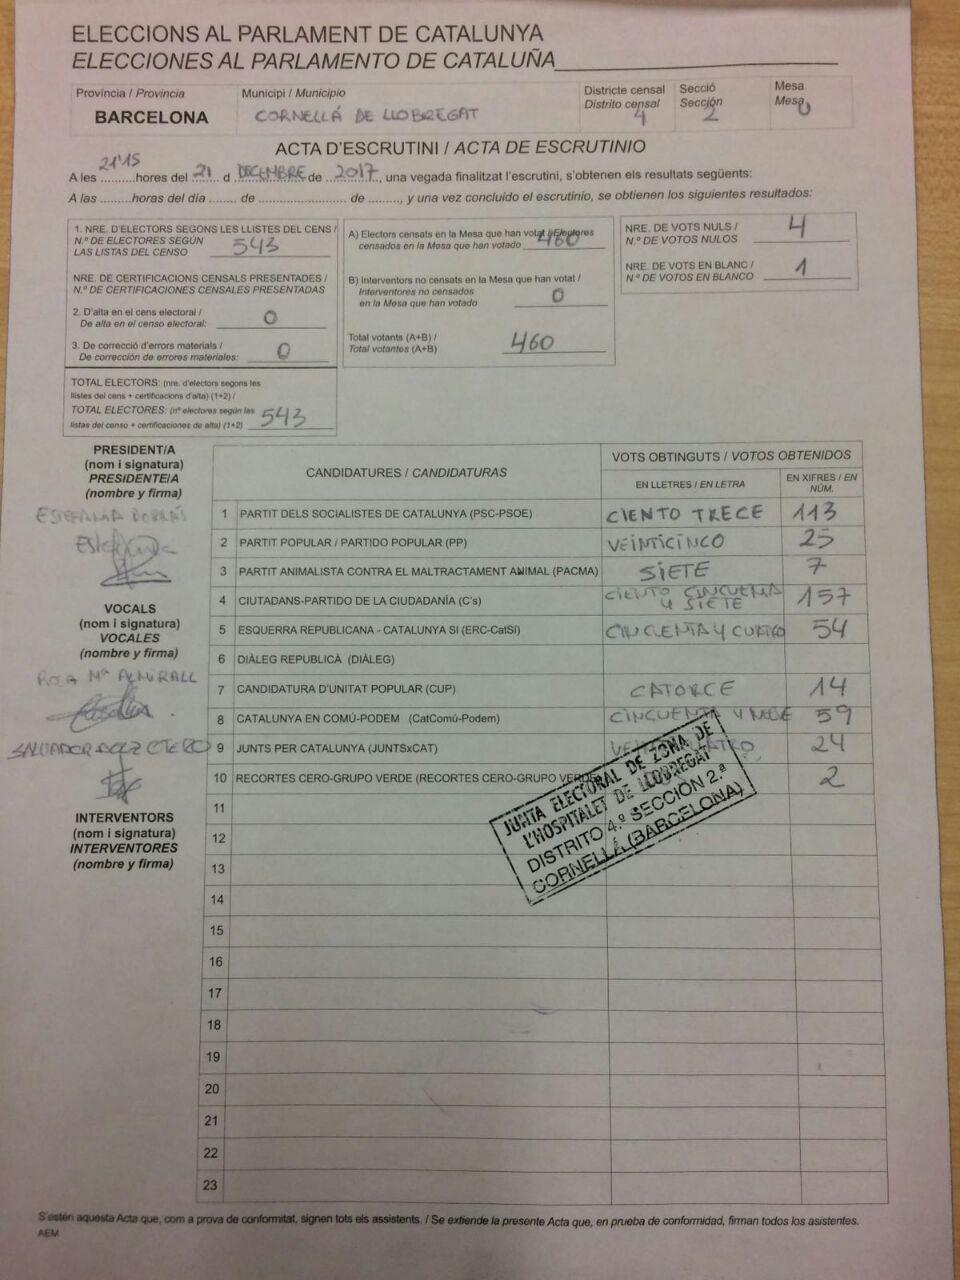 ELECCIONS AL PARLAMENT DE CATALUNYA
ELECCIONES AL PARLAMENTO DE CATALUÑA
Província / Provincia
BARCELONA
Municipi / Municipio
CORNELLÁ DE LLOBREGAT
Districte censal
Distrito censal
4
Secció
Sección
2
Mesa
Mesa
U
ACTA D'ESCRUTINI / ACTA DE ESCRUTINIO
A les 21'15 hores del 21 d DECEMBRE de 2017, una vegada finalitzat l'escrutini, s'obtenen els resultats següents:
A las ..........horas del día ........ de ........................ de ........., y una vez concluido el escrutinio, se obtienen los siguientes resultados:
1. NRE. D'ELECTORS SEGONS LES LLISTES DEL CENS /
N.º DE ELECTORES SEGÚN
LAS LISTAS DEL CENSO 543
NRE. DE CERTIFICACIONS CENSALS PRESENTADES /
N.º DE CERTIFICACIONES CENSALES PRESENTADAS
2. D'alta en el cens electoral /
De alta en el censo electoral: 0
3. De correcció d'errors materials /
De corrección de errores materiales: 0
TOTAL ELECTORS: (nre. d'electors segons les
llistes del cens + certificacions d'alta) (1+2) /
TOTAL ELECTORES: (nº electores según las
listas del censo + certificaciones de alta) (1+2) 543
A) Electors censats en la Mesa que han votat / Electores
censados en la Mesa que han votado 460
B) Interventors no censats en la Mesa que han votat /
Interventores no censados
en la Mesa que han votado 0
Total votants (A+B) /
Total votantes (A+B) 460
NRE. DE VOTS NULS /
N.º DE VOTOS NULOS 4
NRE. DE VOTS EN BLANC /
N.º DE VOTOS EN BLANCO 1
PRESIDENT/A
(nom i signatura)
PRESIDENTE/A
(nombre y firma)
VOCALS
(nom i signatura)
VOCALES
(nombre y firma)
ROSA Mª ALMIRALL
SALVADOR
INTERVENTORS
(nom i signatura)
INTERVENTORES
(nombre y firma)
CANDIDATURES / CANDIDATURAS
VOTS OBTINGUTS / VOTOS OBTENIDOS
EN LLETRES / EN LETRA
EN XIFRES / EN NÚM.
1 PARTIT DELS SOCIALISTES DE CATALUNYA (PSC-PSOE) CIENTO TRECE 113
2 PARTIT POPULAR / PARTIDO POPULAR (PP) VEINTICINCO 25
3 PARTIT ANIMALISTA CONTRA EL MALTRACTAMENT ANIMAL (PACMA) SIETE 7
4 CIUTADANS-PARTIDO DE LA CIUDADANÍA (C's) CIENTO CINCUENTA Y SIETE 157
5 ESQUERRA REPUBLICANA - CATALUNYA SI (ERC-CatSí) CINCUENTA Y CUATRO 54
6 DIÀLEG REPUBLICÀ (DIÀLEG)
7 CANDIDATURA D'UNITAT POPULAR (CUP) CATORCE 14
8 CATALUNYA EN COMÚ-PODEM (CatComú-Podem) CINCUENTA Y NUEVE 59
9 JUNTS PER CATALUNYA (JUNTSxCAT) 24
10 RECORTES CERO-GRUPO VERDE (RECORTES CERO-GRUPO VERDE) 2
11
12
13
14
15
16
17
18
19
20
21
22
23
JUNTA ELECTORAL DE ZONA DE
L'HOSPITALET DE LLOBREGAT
DISTRITO 4.º SECCIÓN 2.ª
CORNELLÁ (BARCELONA)
S'estén aquesta Acta que, com a prova de conformitat, signen tots els assistents. / Se extiende la presente Acta que, en prueba de conformidad, firman todos los asistentes.
AEM